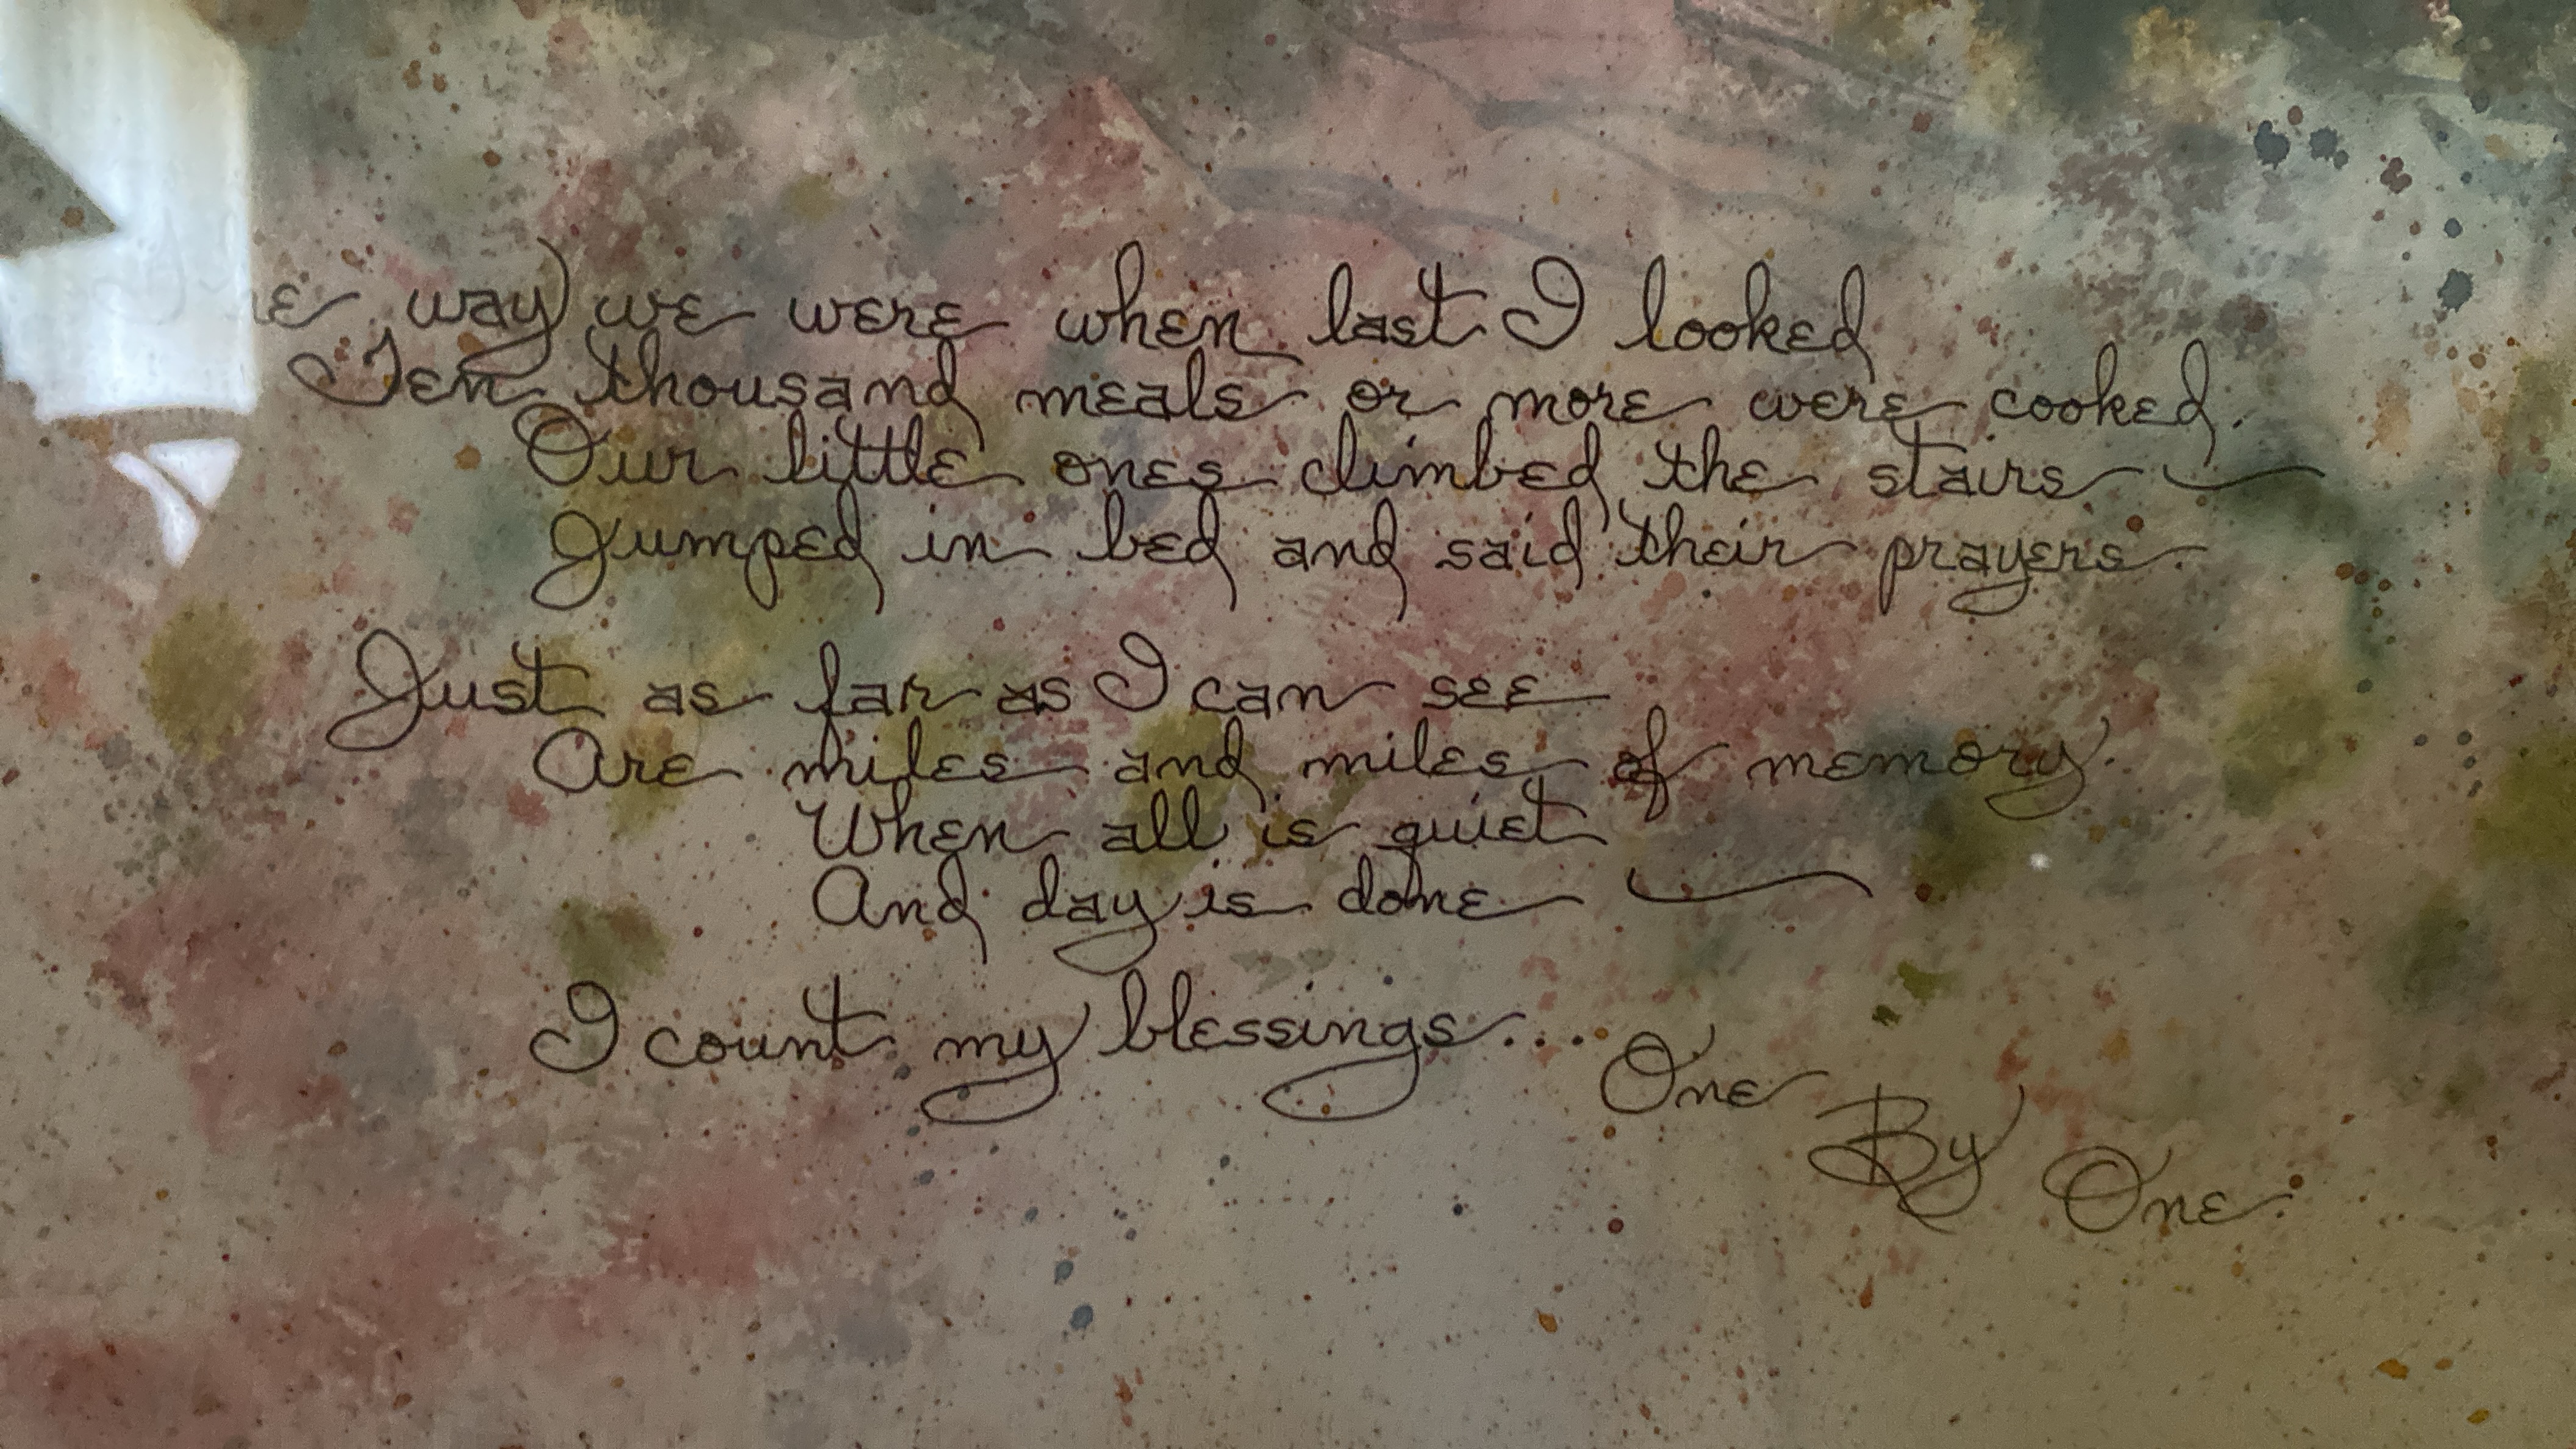 way we were when last I looked
Ten thousand meals or more were cooked.
Our little ones climbed the stairs
Jumped in bed and said their prayers.
Just as far as I can see
Are miles and miles of memory.
When all is quiet
And day is done
I count my blessings... One
By One.